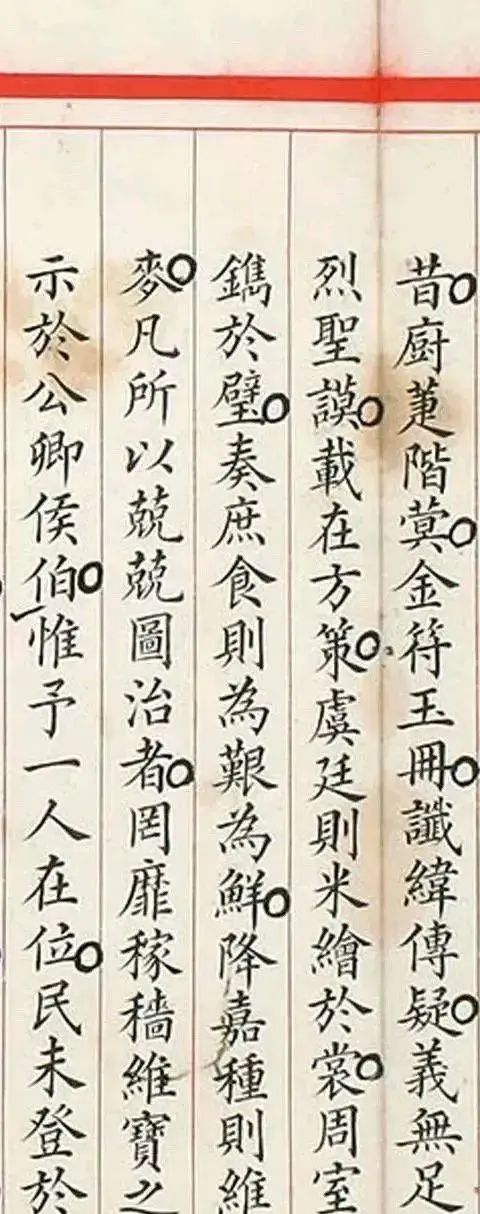 昔廚萐階蓂金符玉冊讖緯傳疑義無足
烈聖謨載在方策虞廷則米繪於裳周室
鐫於璧奏庶食則為艱為鮮降嘉種則維
麥凡所以兢兢圖治者罔靡稼穡維寶之
示於公卿侯伯惟予一人在位民未登於